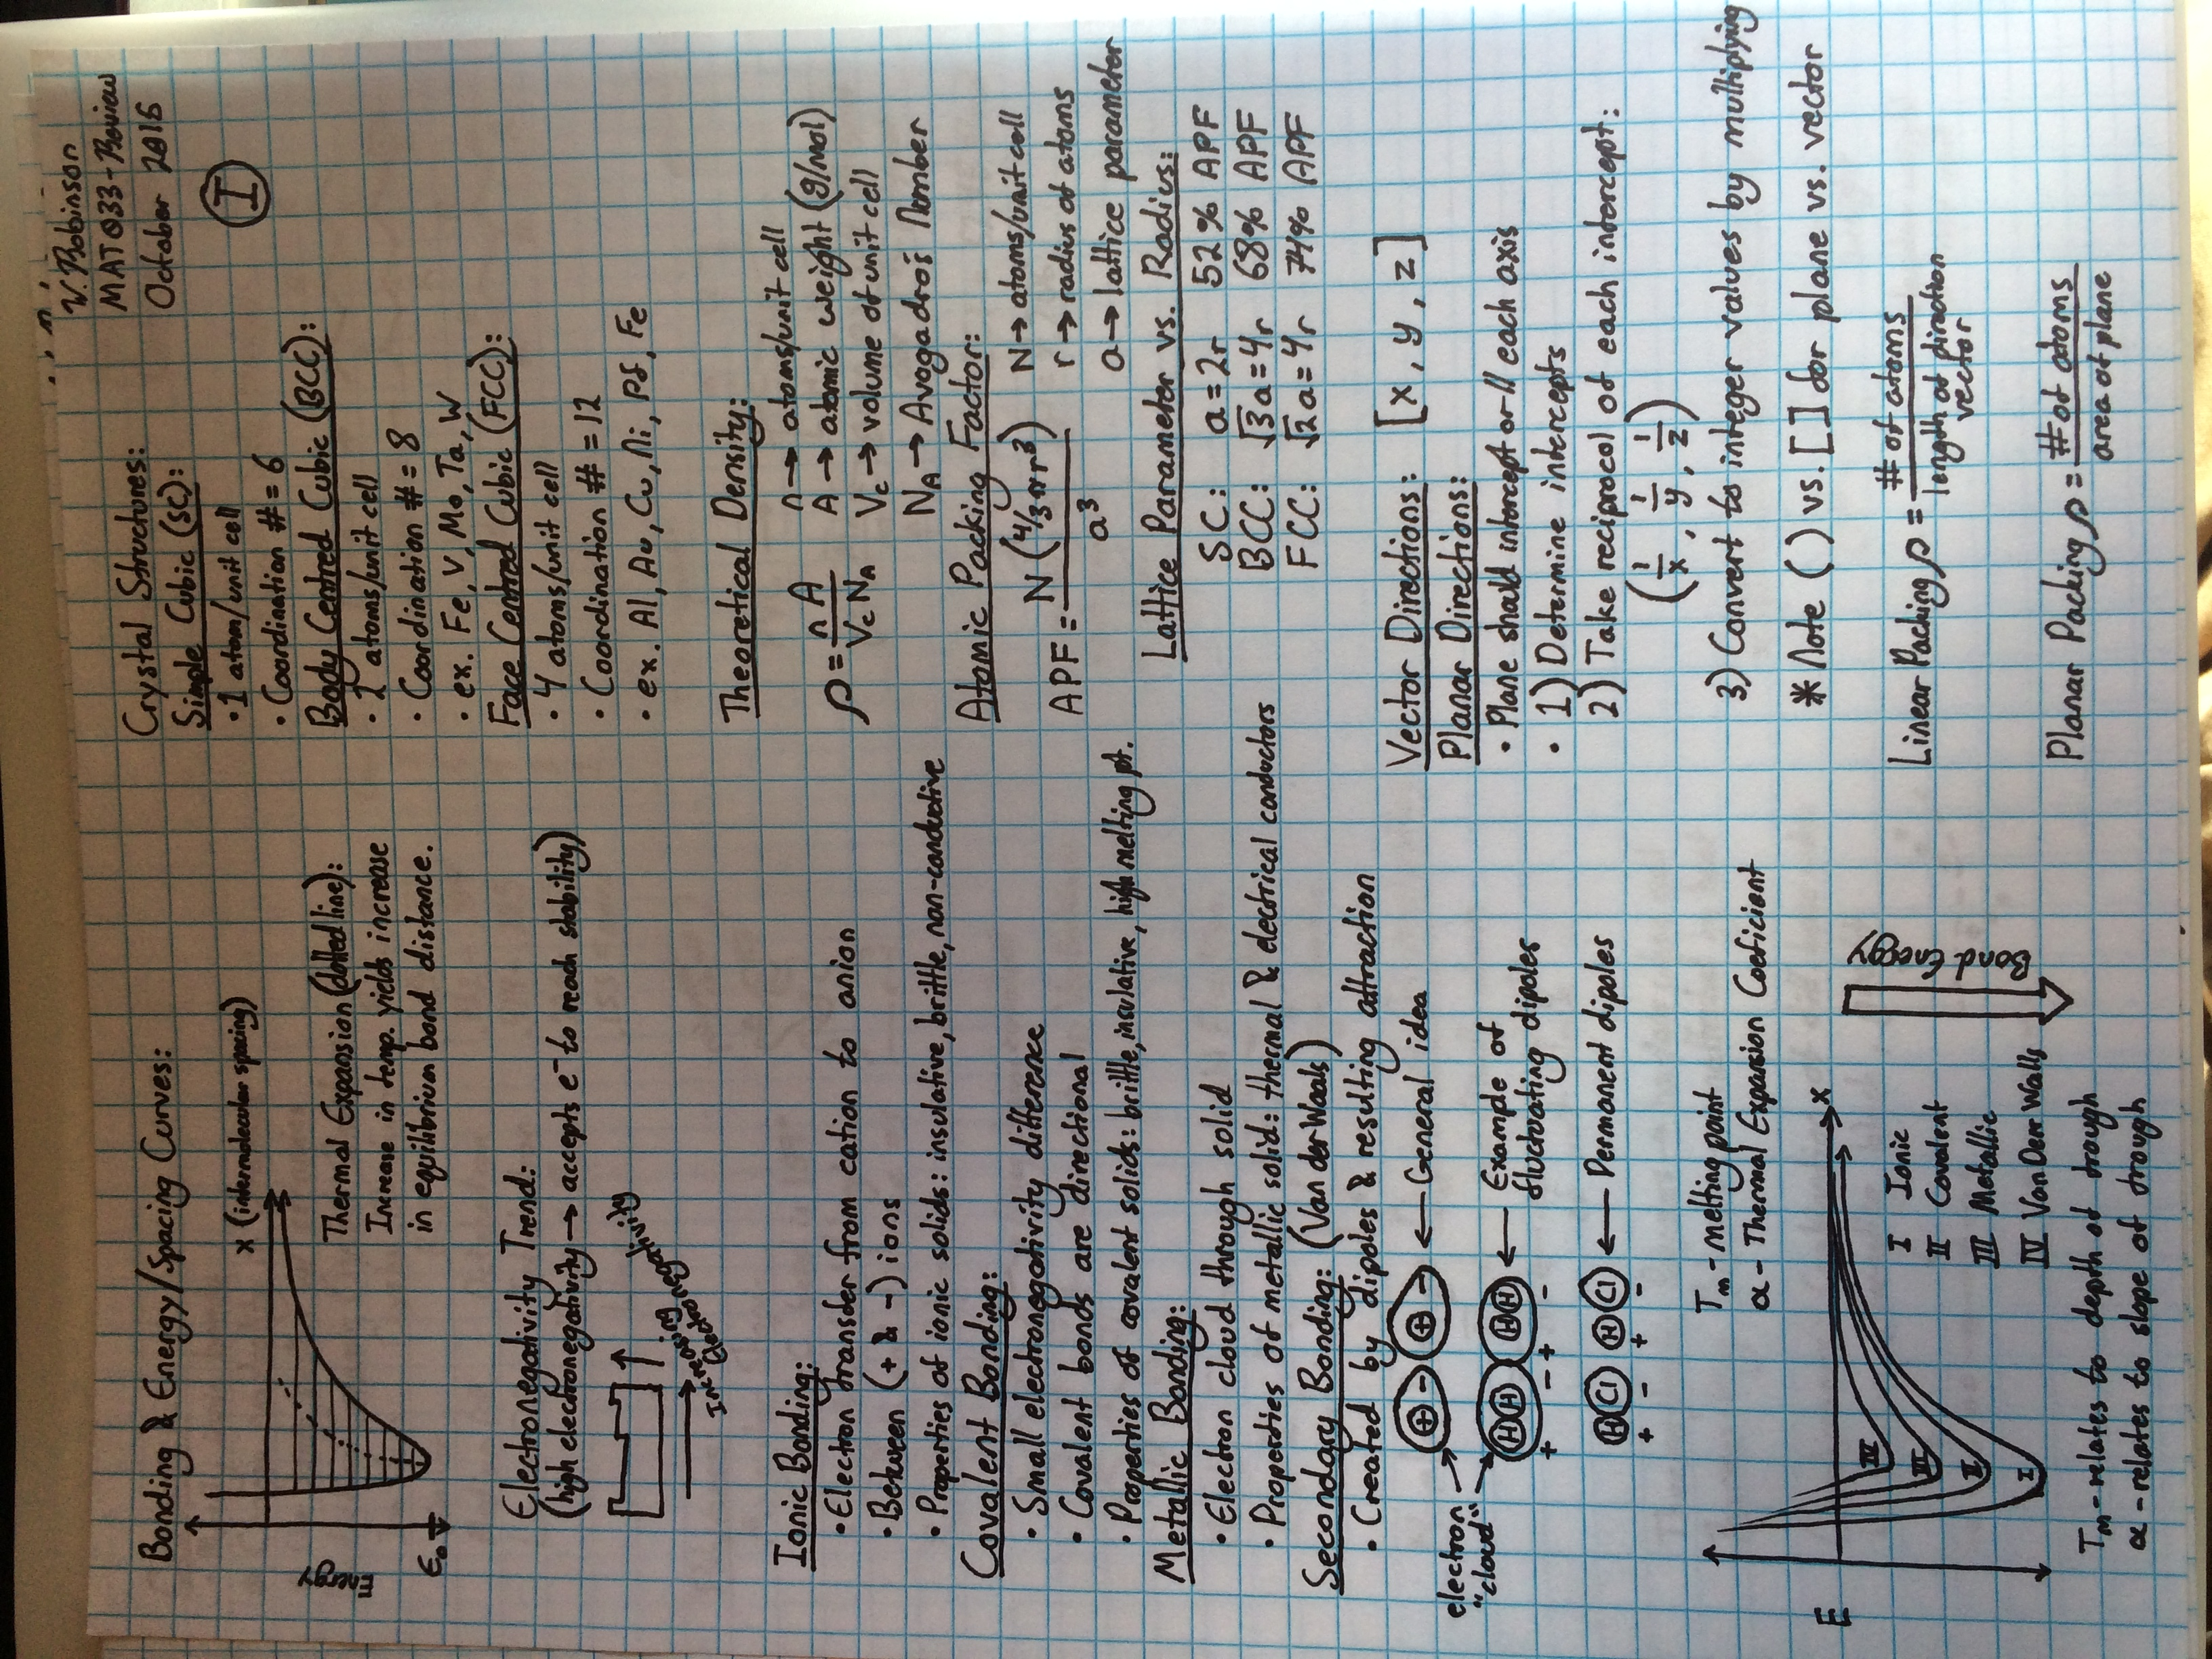 V. Robinson
MAT E 033 - Review
October 2016
I
Bonding & Energy/Spacing Curves:
x (intermolecular spacing)
Energy
E₀
Thermal Expansion (dotted line):
Increase in temp. yields increase
in equilibrium bond distance.
Electronegativity Trend:
(high electronegativity → accepts e⁻ to reach stability)
Increasing
Electronegativity
Ionic Bonding:
• Electron transfer from cation to anion
• Between (+ & -) ions
• Properties of ionic solids: insulative, brittle, non-conductive
Covalent Bonding:
• Small electronegativity difference
• Covalent bonds are directional
• Properties of covalent solids: brittle, insulative, high melting pt.
Metallic Bonding:
• Electron cloud through solid
• Properties of metallic solid: thermal & electrical conductors
Secondary Bonding: (Van der Waals)
• Created by dipoles & resulting attraction
electron
"cloud"
+ - + - ← General idea
H H H H ← Example of
+ - + - fluctuating dipoles
H Cl H Cl ← Permanent dipoles
+ - + -
Tm - melting point
α - Thermal Expansion Coeficient
E
x
IV
III
II
I
I Ionic
II Covalent
III Metallic
IV Van Derr Walls
Bond Energy
Tm - relates to depth of trough
α - relates to slope of trough
Crystal Structures:
Simple Cubic (SC):
• 1 atom/unit cell
• Coordination # = 6
Body Centred Cubic (BCC):
• 2 atoms/unit cell
• Coordination # = 8
• ex. Fe, V, Mo, Ta, W
Face Centred Cubic (FCC):
• 4 atoms/unit cell
• Coordination # = 12
• ex. Al, Au, Cu, Ni, Pt, Fe
Theoretical Density:
ρ = nA / Vc NA
n → atoms/unit cell
A → atomic weight (g/mol)
Vc → volume of unit cell
NA → Avogadros Number
Atomic Packing Factor:
APF = N (4/3 π r³) / a³
N → atoms/unit cell
r → radius of atoms
a → lattice parameter
Lattice Parameter vs. Radius:
SC: a = 2r 52% APF
BCC: √3a = 4r 68% APF
FCC: √2a = 4r 74% APF
Vector Directions: [x, y, z]
Planar Directions:
• Plane should intercept or || each axis
• 1) Determine intercepts
2) Take reciprocol of each intercept:
(1/x, 1/y, 1/z)
3) Convert to integer values by multiplying
* Note ( ) vs. [ ] for plane vs. vector
Linear Packing ρ = # of atoms / length of direction vector
Planar Packing ρ = # of atoms / area of plane